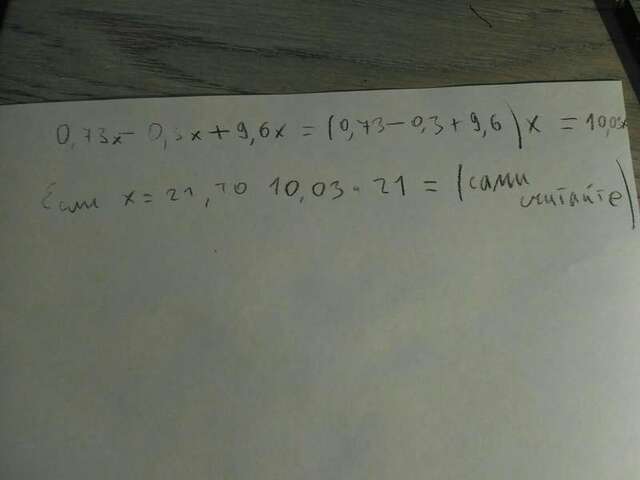 0,73x - 0,3x + 9,6x = (0,73 - 0,3 + 9,6)x = 10,03x
Если x = 21, то 10,03 · 21 = (сами
считайте)